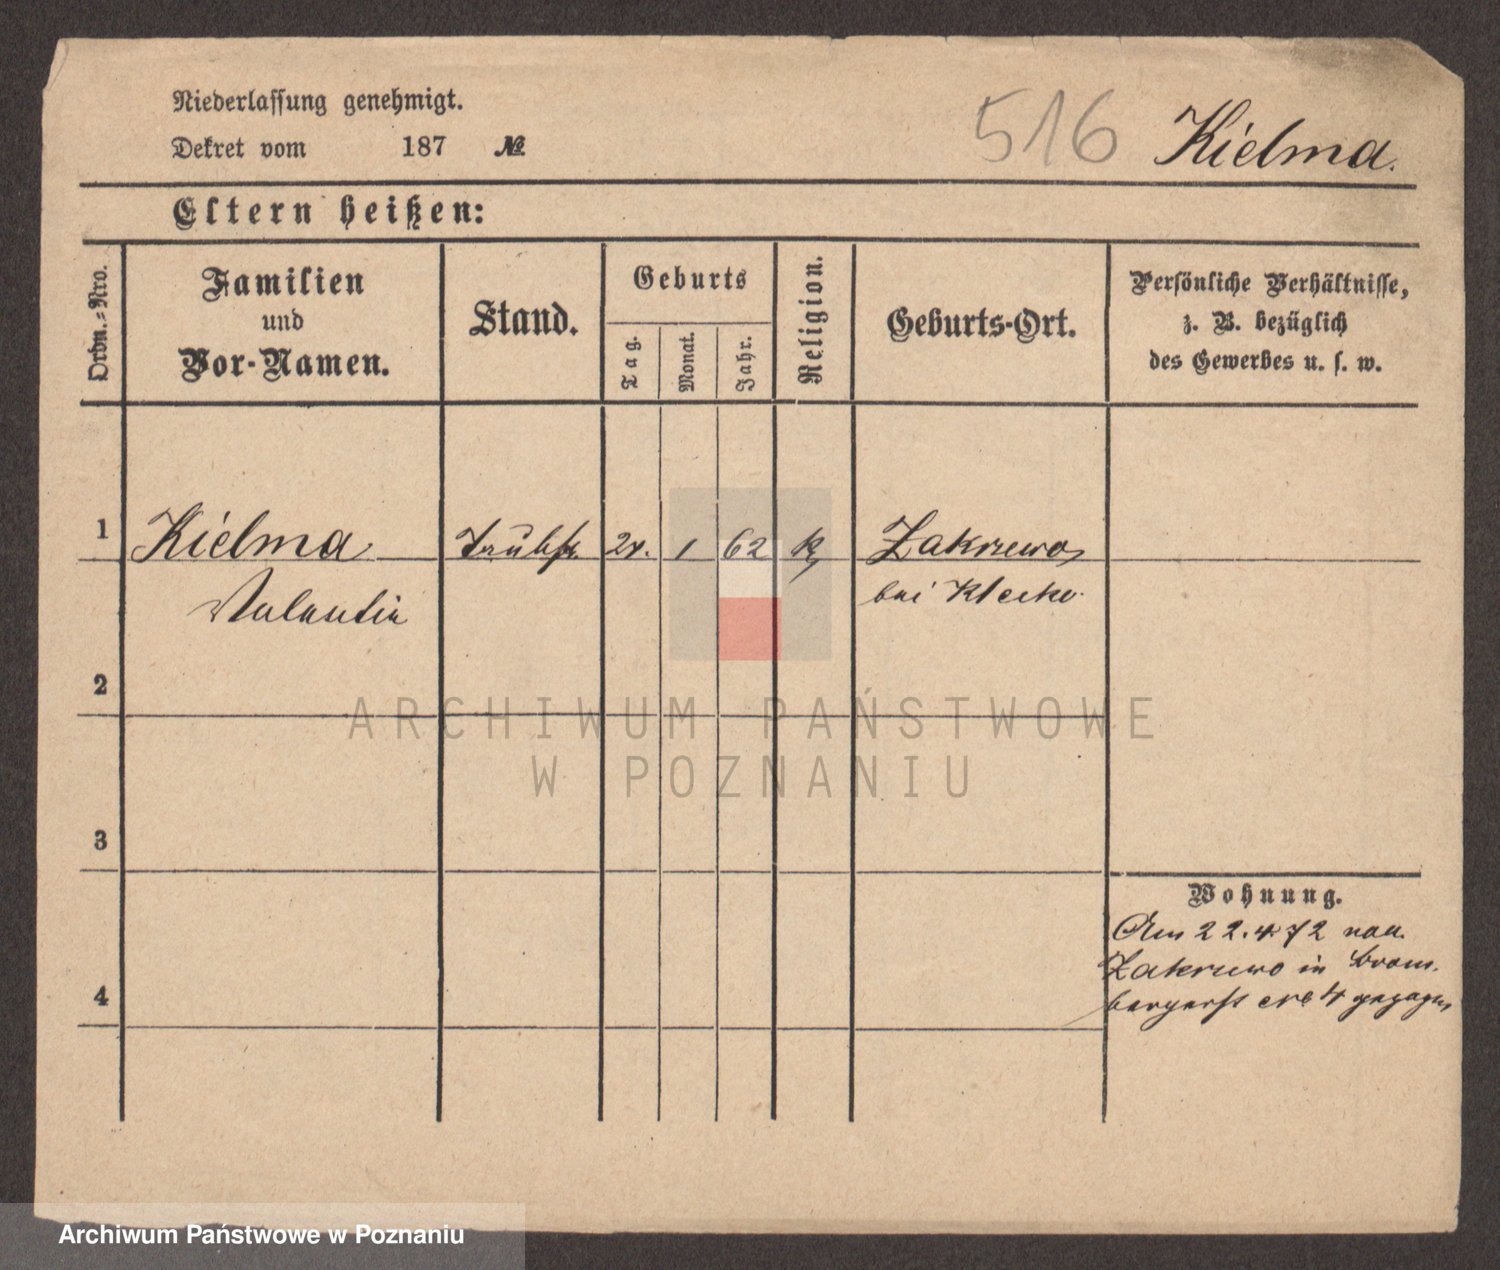 Niederlassung genehmigt.
Dekret vom 187 №
516 Kielma.
Eltern heißen:
Ordn.-Nro.
Familien
und
Vor-Namen.
Stand.
Geburts
Tag.
Monat.
Jahr.
Religion.
Geburts-Ort.
Persönliche Verhältnisse,
z. B. bezüglich
des Gewerbes u. s. w.
1 Kielma 1 62 k Zakrzewo
Valentin
bei Klecko.
2
ARCHIWUM PAŃSTWOWE
W POZNANIU
3
Wohnung.
Am 22.4.72 von
Zakrzewo in Brom-
bergerst No 4 gezogen
4
Archiwum Państwowe w Poznaniu